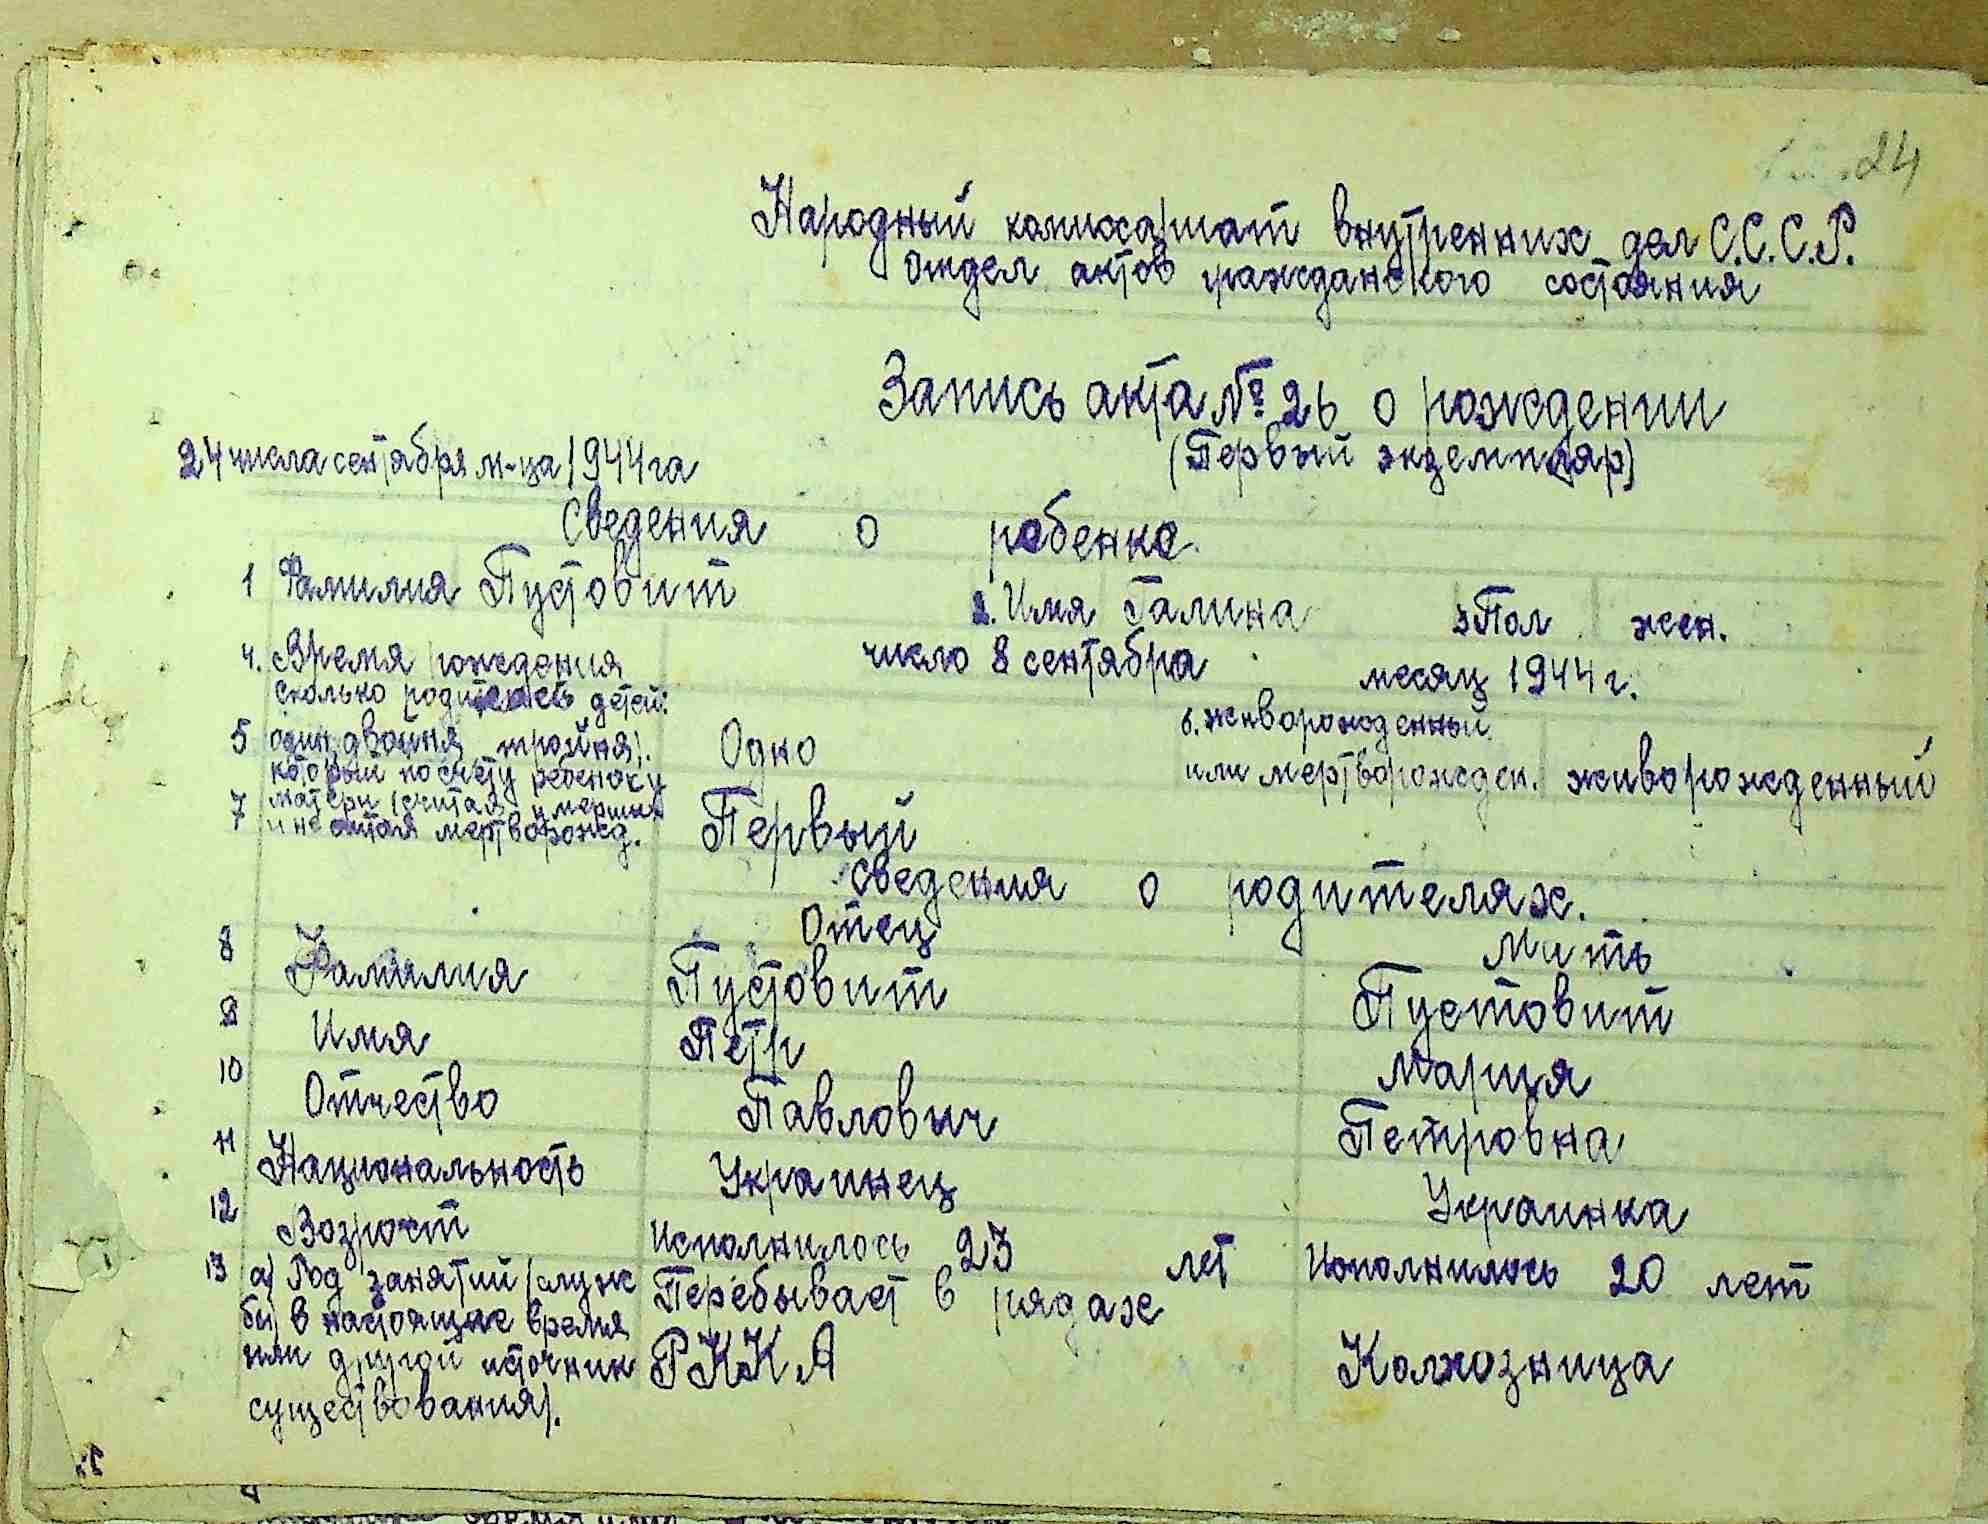 24
Народный комиссариат внутренних дел С.С.С.Р.
Отдел актов гражданского состояния
Запись акта № 26 о рождении
(Первый экземпляр)
24 числа сентября м-ца 1944 га
Сведения о ребенке.
1 Фамилия Пустовит 2. Имя Галина 3 Пол жен.
4. Время рождения число 8 сентября месяц 1944 г.
сколько родилось детей:
5 один, двойня, тройня). Одно
6. живорожденный
или мертворожден. живорожденный
который по счету ребенок у
7 матери (считая умерших
и не считая мертворожд. Первый
Сведения о родителях.
Отец Мать
8 Фамилия Пустовит Пустовит
9 Имя Петр Мария
10 Отчество Павлович Петровна
11 Национальность Украинец Украинка
12 Возраст Исполнилось 23 лет Исполнилось 20 лет
13 а) Род занятий (служ Перебывает в рядах
бы) в настоящие время
или другой источник РККА Колхозница
существования).